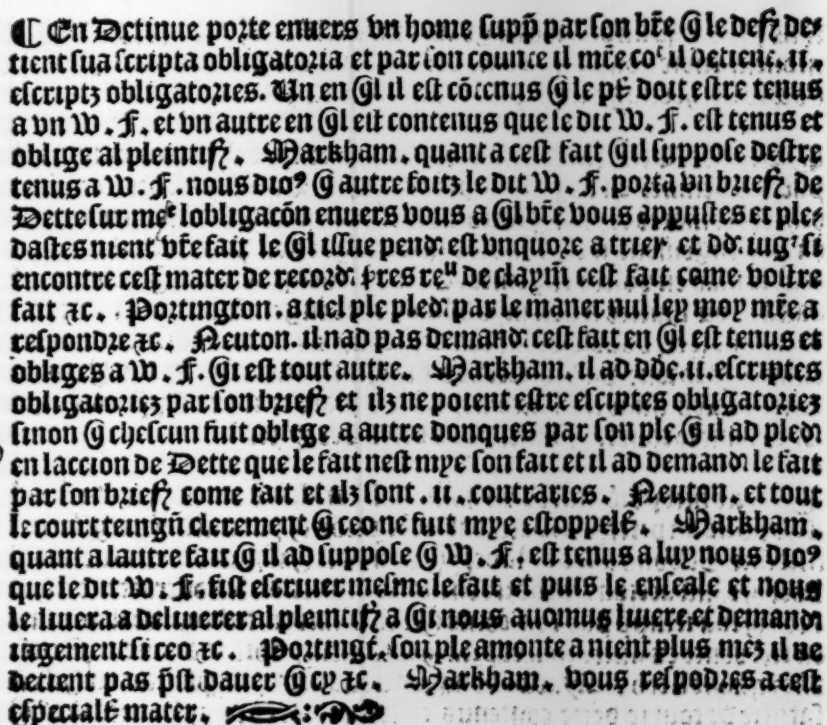 ¶ En Detinue porte enuers vn home supp̄ par son br̃e q̄ le def₎ de⸗
tient sua scripta obligatoria et par son counte il mr̃e co' il detient .ii.
escriptz obligatories. Un en q̄l il est cõtenus q̄ le pł doit estre tenus
a vn W. F. et vn autre en q̄l est contenus que le dit W. F. est tenus et
oblige al pleintif₎. Markham. quant a cest fait q̄il suppose destre
tenus a W. F. nous dioꝰ q̄ autre foitz le dit W. F. porta vn brief₎ de
Dette sur mesᵉ lobligacõn enuers vous a q̄l br̃e vous apparustes et ple⸗
dastes nient vr̃e fait le q̄l issue pend̛. est vnquore a trier et dd̛. iug' si
encontre cest mater de record̛. s̾res reᵘ de claym̃ cest fait come vostre
fait ⁊c. Portington. a tiel ple pled̛. par le maner nul ley moy mr̃e a
respondre ⁊c. Neuton. il nad pas demand̛. cest fait en q̄l est tenus et
obliges a W. F. q̄i est tout autre. Markham. il ad dd̛e .ii. escriptes
obligatoriez par son brief₎ et ilz ne poient estre esciptes obligatoriez
sinon q̄ chescun fuit oblige a autre donques par son ple q̄ il ad pled̛
en laccion de Dette que le fait nest mye son fait et il ad demand̛ le fait
par son brief₎ come fait et ilz sont .ii. contraries. Neuton. et tout
le court teingñ clerement q̄ ceo ne fuit mye estoppelł. Markham.
quant a lautre fait q̄ il ad suppose q̄ W. F. est tenus a luy nous dioꝰ
que le dit W. F. fist escriuer mesme le fait et puis le enseale et nous
le liuera a deliuerer al pleintif₎ a q̄i nous auomus liuere et demand̛
iugement si ceo ⁊c. Portingt̃. son ple amonte a nient plus mez il ne
detient pas p̄st dauer q̄ cy ⁊c. Markham. vous respodres a cest
especialł mater.